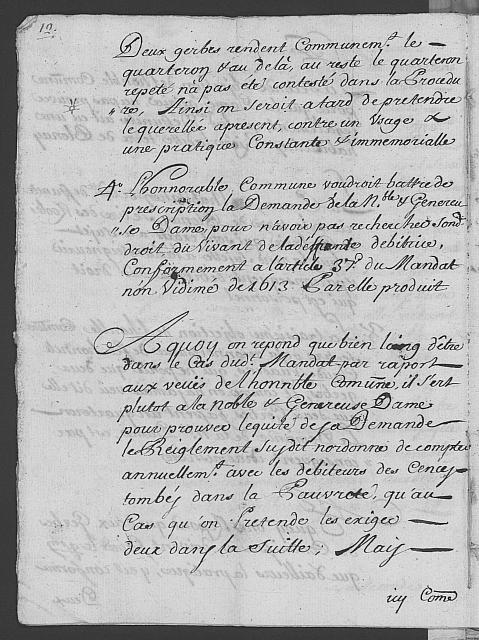 12.
Deux gerbes rendent Communem.t le
quarteron & au delà, au reste le quarteron
repeté n'à pas été contesté dans la Procedu
„ re, Ainsi on seroit atard de pretendre
le quereller apresent, contre un Usage &
une pratique Constante & immemorialle
4.o L'honnorable Commune voudroit battre de
prescription la Demande de la N.ble & Genereu
„ se Dame pour n'avoir pas recherché son d.
droit du Vivant de la defunte debitrice,
Conformement a l'article 37.e du Mandat
non Vidimé de 1613. Par elle produit
A quoy on repond que bien loing d'être
dans le Cas dud.t Mandat par raport
aux veües de l'honnble Comune, il sert
plutot a la Noble & Genereuse Dame
pour prouver lequité de sa Demande
le Reiglement susdit n'ordonne de compter
annuellem.t avec les debiteurs des Cences
tombés dans la Pauvreté, qu'au
Cas qu'on Pretende les exiger
deux dans la Suitte; Mais
icy Come